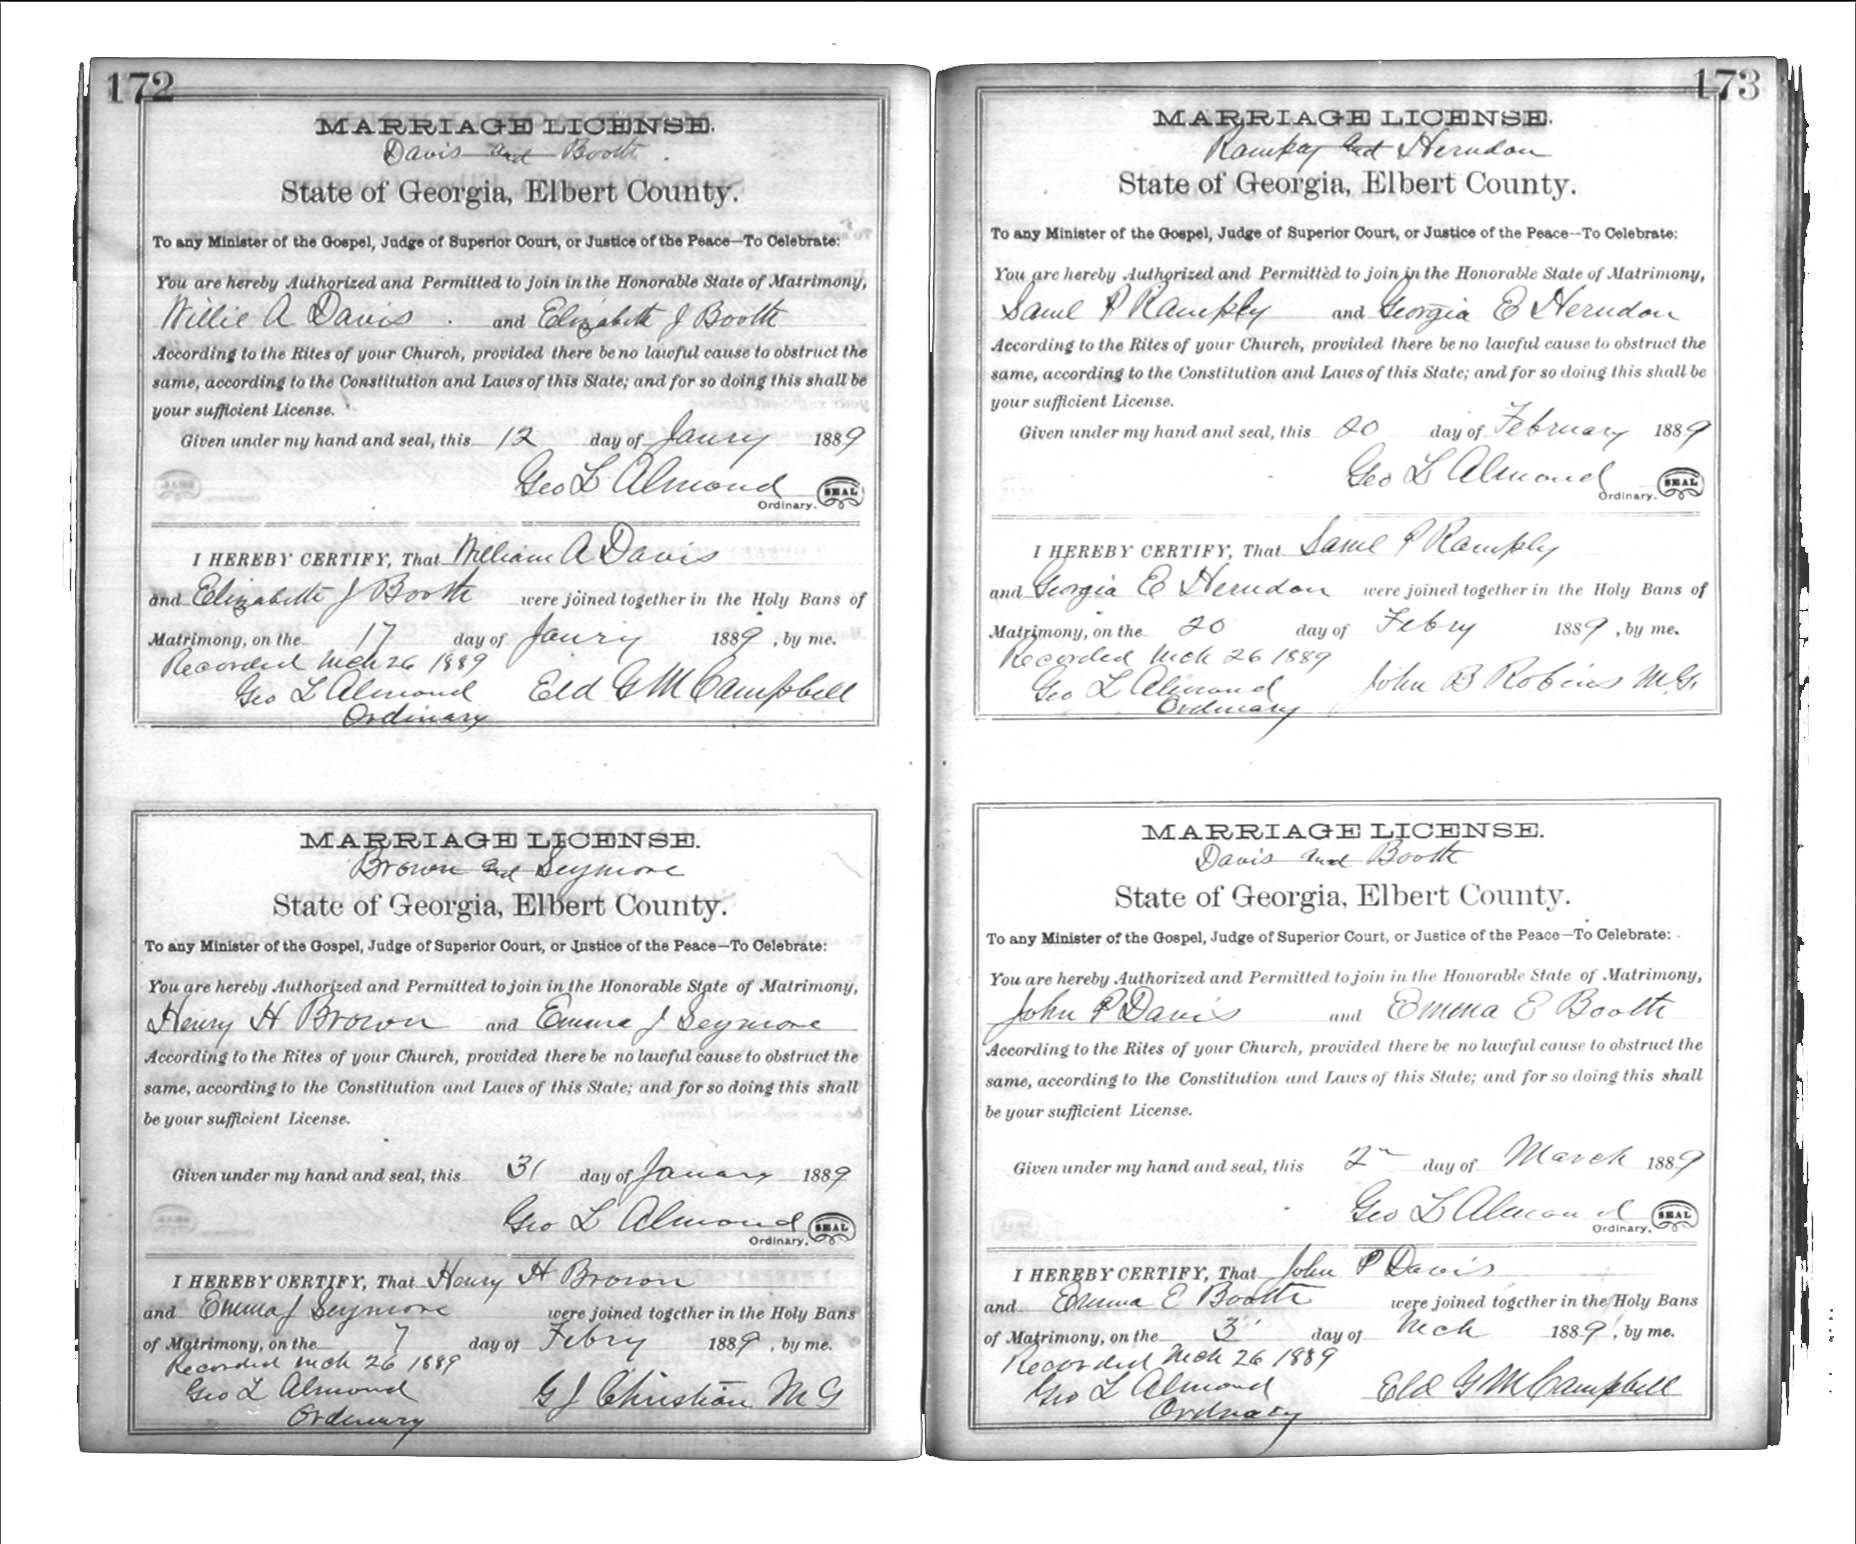 172
MARRIAGE LICENSE.
Davis and Booth
State of Georgia, Elbert County.
To any Minister of the Gospel, Judge of Superior Court, or Justice of the Peace—To Celebrate:
You are hereby Authorized and Permitted to join in the Honorable State of Matrimony,
Willie A Davis and Elizabeth J Booth
According to the Rites of your Church, provided there be no lawful cause to obstruct the
same, according to the Constitution and Laws of this State; and for so doing this shall be
your sufficient License.
Given under my hand and seal, this 12 day of Janry 1889
Geo L Almond
Ordinary. SEAL
I HEREBY CERTIFY, That William A Davis
and Elizabeth J Booth were joined together in the Holy Bans of
Matrimony, on the 17 day of Janry 1889, by me.
Recorded Mch 26 1889
Geo L Almond Eld G M Campbell
Ordinary
MARRIAGE LICENSE.
Brown and Seymore
State of Georgia, Elbert County.
To any Minister of the Gospel, Judge of Superior Court, or Justice of the Peace—To Celebrate:
You are hereby Authorized and Permitted to join in the Honorable State of Matrimony,
Henry H Brown and Emma J Seymore
According to the Rites of your Church, provided there be no lawful cause to obstruct the
same, according to the Constitution and Laws of this State; and for so doing this shall
be your sufficient License.
Given under my hand and seal, this 31 day of January 1889
Geo L Almond
Ordinary. SEAL
I HEREBY CERTIFY, That Henry H Brown
and Emma J Seymore were joined together in the Holy Bans
of Matrimony, on the 7 day of Febry 1889, by me.
Recorded Mch 26 1889
Geo L Almond G J Christian M G
Ordinary
173
MARRIAGE LICENSE.
Rampy and Herndon
State of Georgia, Elbert County.
To any Minister of the Gospel, Judge of Superior Court, or Justice of the Peace—To Celebrate:
You are hereby Authorized and Permitted to join in the Honorable State of Matrimony,
Saml P Ramply and Georgia E Herndon
According to the Rites of your Church, provided there be no lawful cause to obstruct the
same, according to the Constitution and Laws of this State; and for so doing this shall be
your sufficient License.
Given under my hand and seal, this 20 day of February 1889
Geo L Almond
Ordinary. SEAL
I HEREBY CERTIFY, That Saml P Ramply
and Georgia E Herndon were joined together in the Holy Bans of
Matrimony, on the 20 day of Febry 1889, by me.
Recorded Mch 26 1889
Geo L Almond John B Robins M.G.
Ordinary
MARRIAGE LICENSE.
Davis and Booth
State of Georgia, Elbert County.
To any Minister of the Gospel, Judge of Superior Court, or Justice of the Peace—To Celebrate:
You are hereby Authorized and Permitted to join in the Honorable State of Matrimony,
John P Davis and Emma E Booth
According to the Rites of your Church, provided there be no lawful cause to obstruct the
same, according to the Constitution and Laws of this State; and for so doing this shall
be your sufficient License.
Given under my hand and seal, this 2 day of March 1889
Geo L Almond
Ordinary. SEAL
I HEREBY CERTIFY, That John P Davis
and Emma E Booth were joined together in the Holy Bans
of Matrimony, on the 3 day of Mch 1889, by me.
Recorded Mch 26 1889
Geo L Almond Eld G M Campbell
Ordinary